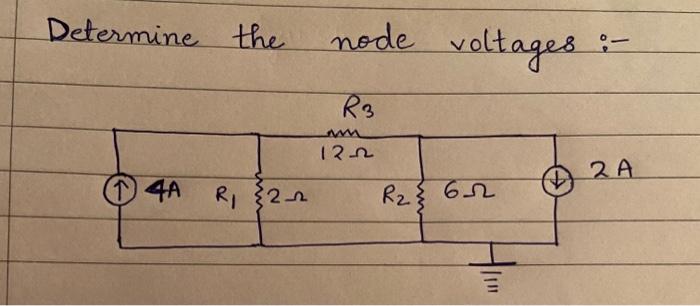 Determine the node voltages :-
R3
12Ω
4A R1 2Ω R2 6Ω 2A